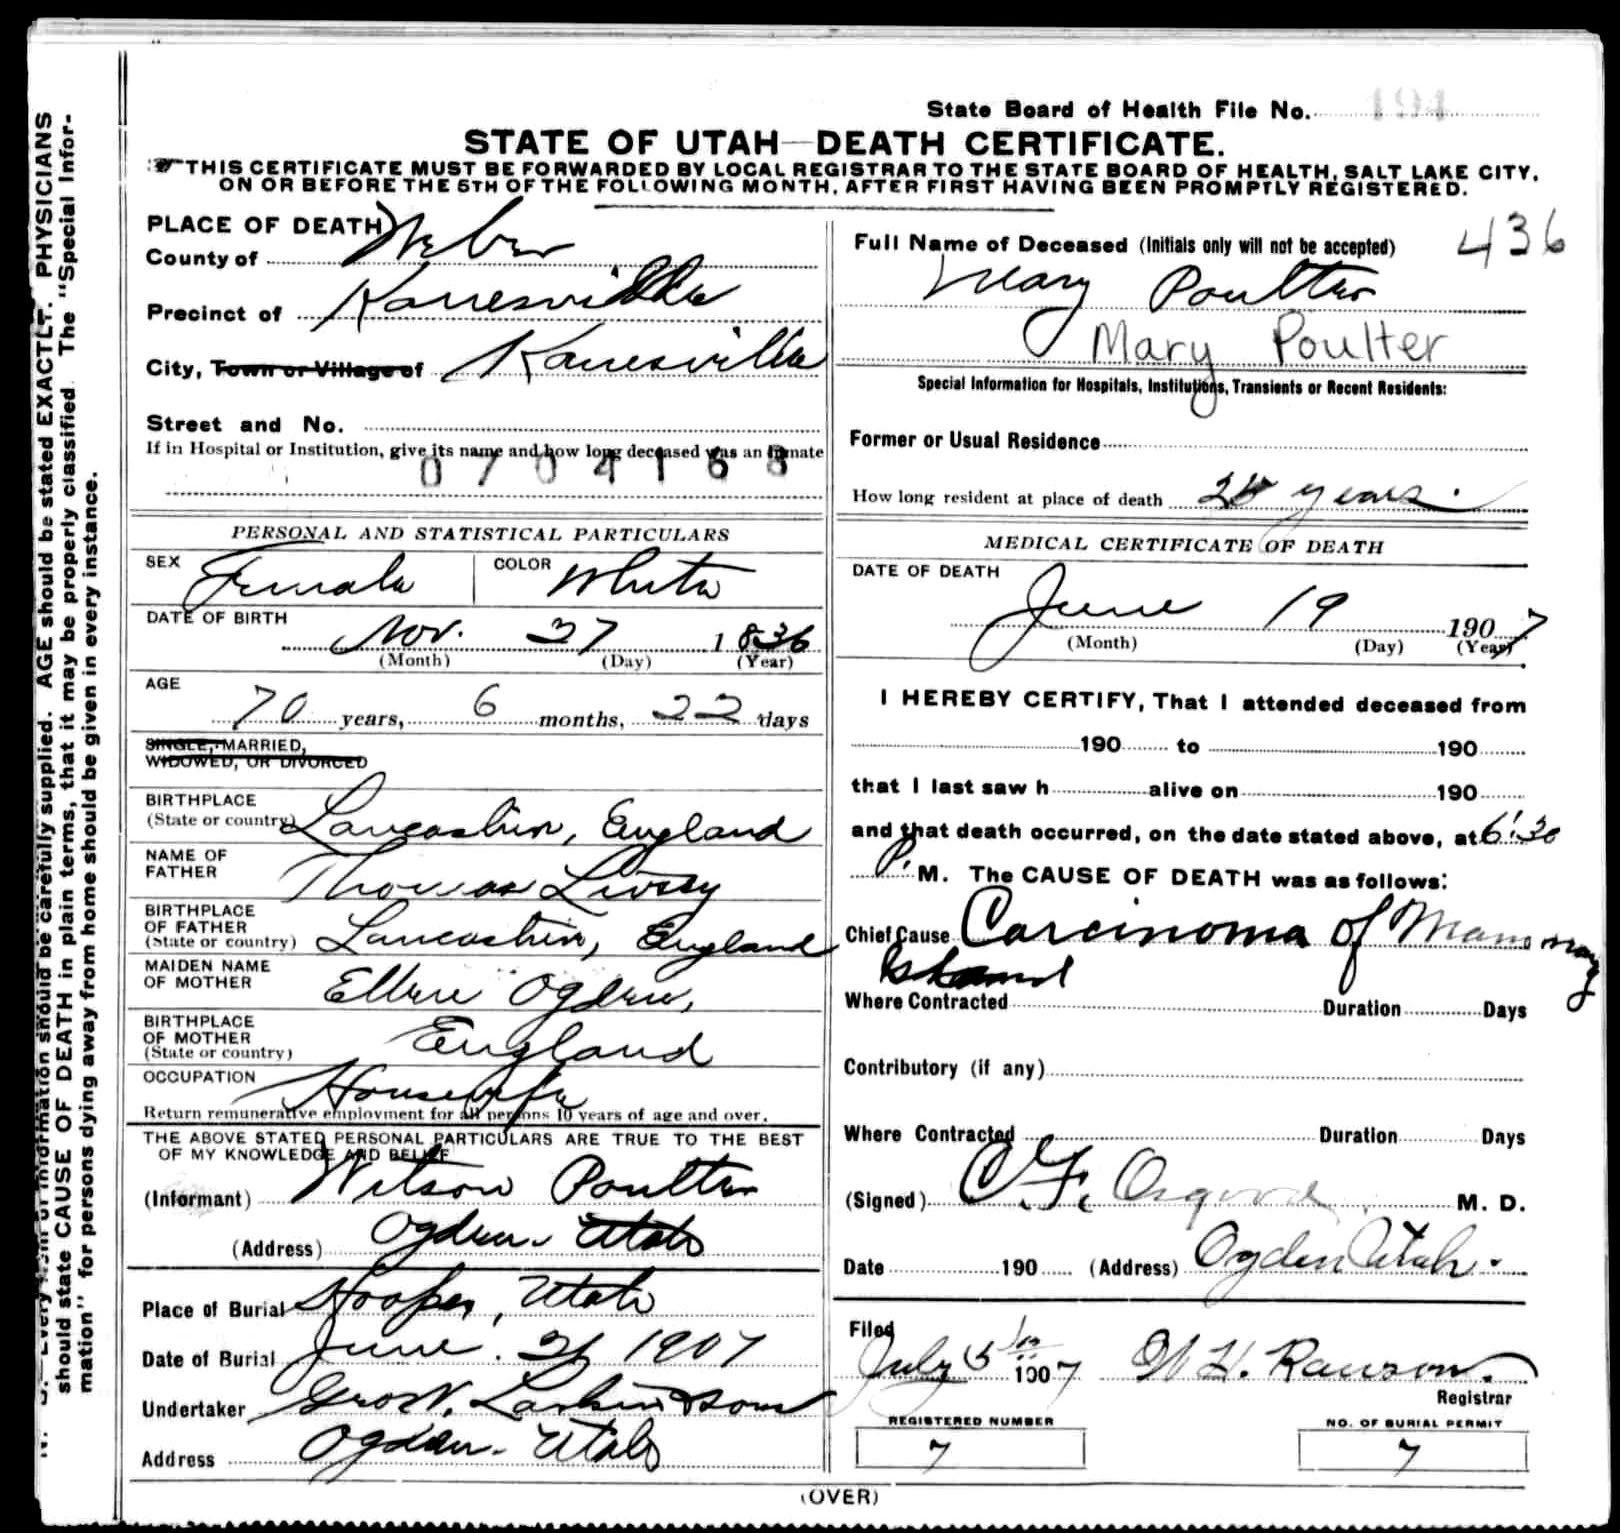 State Board of Health File No. 194
STATE OF UTAH—DEATH CERTIFICATE.
THIS CERTIFICATE MUST BE FORWARDED BY LOCAL REGISTRAR TO THE STATE BOARD OF HEALTH, SALT LAKE CITY,
ON OR BEFORE THE 5TH OF THE FOLLOWING MONTH, AFTER FIRST HAVING BEEN PROMPTLY REGISTERED.
PLACE OF DEATH
County of Weber
Precinct of Kanesville
City, Town or Village of Kanesville
Street and No.
If in Hospital or Institution, give its name and how long deceased was an inmate
0704163
PERSONAL AND STATISTICAL PARTICULARS
SEX Female COLOR White
DATE OF BIRTH
Nov. 27 1836
(Month) (Day) (Year)
AGE
70 years, 6 months, 22 days
SINGLE, MARRIED,
WIDOWED, OR DIVORCED
BIRTHPLACE
(State or country) Lancashire, England
NAME OF
FATHER Thomas Livsey
BIRTHPLACE
OF FATHER
(State or country) Lancashire, England
MAIDEN NAME
OF MOTHER Ellen Ogden,
BIRTHPLACE
OF MOTHER England
(State or country)
OCCUPATION Housewife
Return remunerative employment for all persons 10 years of age and over.
THE ABOVE STATED PERSONAL PARTICULARS ARE TRUE TO THE BEST
OF MY KNOWLEDGE AND BELIEF
(Informant) Wilson Poulter
(Address) Ogden. Utah
Place of Burial Hooper, Utah
Date of Burial June. 21 1907
Undertaker Geo W. Larkin & Sons
Address Ogden. Utah
436
Full Name of Deceased (Initials only will not be accepted)
Mary Poulter
Mary Poulter
Special Information for Hospitals, Institutions, Transients or Recent Residents:
Former or Usual Residence
How long resident at place of death years.
MEDICAL CERTIFICATE OF DEATH
DATE OF DEATH
June 19 1907
(Month) (Day) (Year)
I HEREBY CERTIFY, That I attended deceased from
190 to 190
that I last saw h alive on 190
and that death occurred, on the date stated above, at 6:30
P. M. The CAUSE OF DEATH was as follows:
Chief Cause Carcinoma of Mammary
Gland
Where Contracted Duration Days
Contributory (if any)
Where Contracted Duration Days
(Signed) C F. Osgood M. D.
Date 190 (Address) Ogden Utah.
Filed
July 5 1907 W. H. Ranson.
Registrar
REGISTERED NUMBER
7
NO. OF BURIAL PERMIT
7
(OVER)
N. B.—Every item of information should be carefully supplied. AGE should be stated EXACTLY. PHYSICIANS
should state CAUSE OF DEATH in plain terms, that it may be properly classified. The "Special Infor-
mation" for persons dying away from home should be given in every instance.